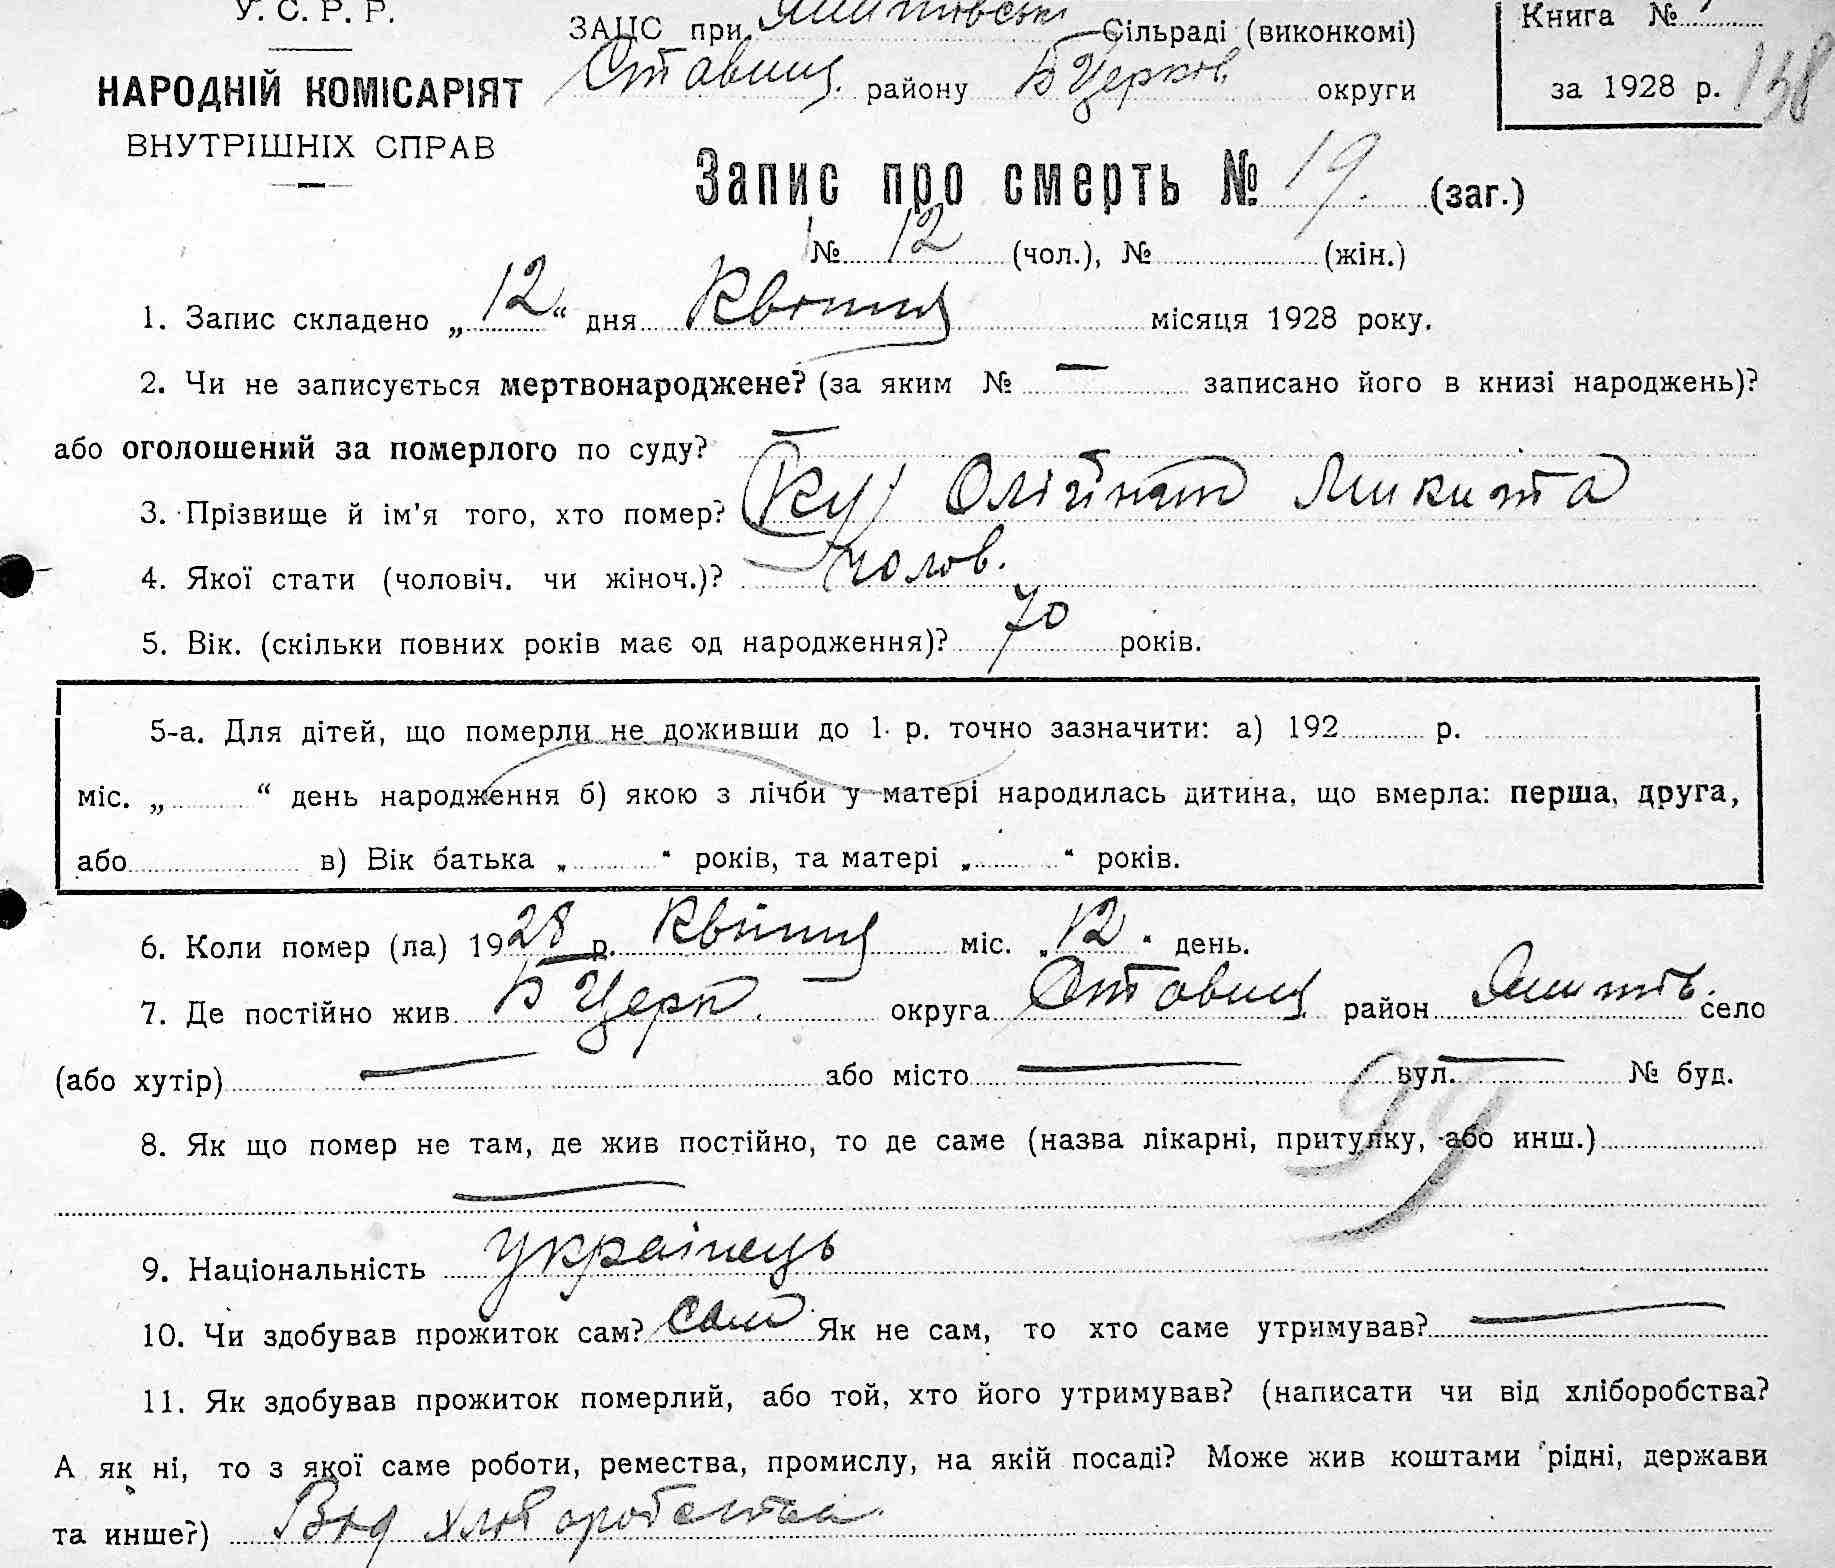 У. С. Р. Р.
НАРОДНІЙ КОМІСАРІЯТ
ВНУТРІШНІХ СПРАВ
ЗАЦС при Сільраді (виконкомі)
Ставищ. району Б Церков. округи
Книга №
за 1928 р. 138
Запис про смерть № 19. (заг.)
№ 12 (чол.), № (жін.)
1. Запис складено „12“ дня Квітня місяця 1928 року.
2. Чи не записується мертвонароджене? (за яким № — записано його в книзі народжень)?
або оголошений за померлого по суду? —
3. Прізвище й ім'я того, хто помер? Олійник Микита
4. Якої стати (чоловіч. чи жіноч.)? чолов.
5. Вік. (скільки повних років має од народження)? 70 років.
5-а. Для дітей, що померли не доживши до 1 р. точно зазначити: а) 192 р.
міс. „ “ день народження б) якою з лічби у матері народилась дитина, що вмерла: перша, друга,
або в) Вік батька „ “ років, та матері „ “ років.
6. Коли помер (ла) 1928 р. Квітня міс. „12“ день.
7. Де постійно жив Б Церк. округа Ставищ. район село
(або хутір) — або місто — вул. — № буд.
8. Як що помер не там, де жив постійно, то де саме (назва лікарні, притулку, або инш.)
—
9. Національність українець
10. Чи здобував прожиток сам? сам Як не сам, то хто саме утримував? —
11. Як здобував прожиток померлий, або той, хто його утримував? (написати чи від хліборобства?
А як ні, то з якої саме роботи, ремества, промислу, на якій посаді? Може жив коштами рідні, держави
та инше?) Від хліборобства